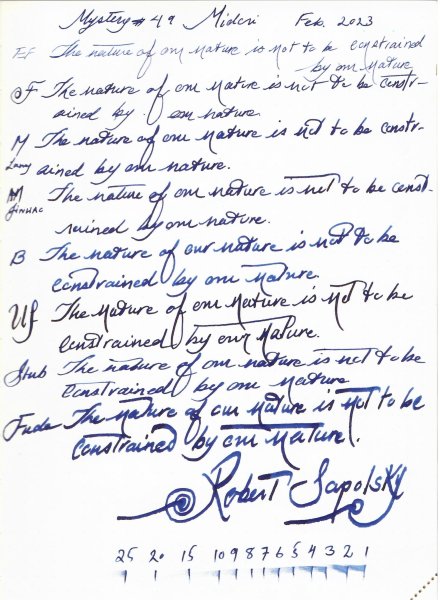 Mystery # 49 Midori Feb. 2023
EF The nature of our nature is not to be constrained
by our nature
F The nature of our nature is not to be constr-
ained by our nature.
M The nature of our nature is not to be constr-
Lamy ained by our nature.
M The nature of our nature is not to be const-
JINHAO rained by our nature.
B The nature of our nature is not to be
constrained by our nature.
Uf The nature of our nature is not to be
constrained by our nature.
Stub The nature of our nature is not to be
constrained by our nature
Fude The nature of our nature is not to be
constrained by our nature.
Robert Sapolsky
25 20 15 10 9 8 7 6 5 4 3 2 1